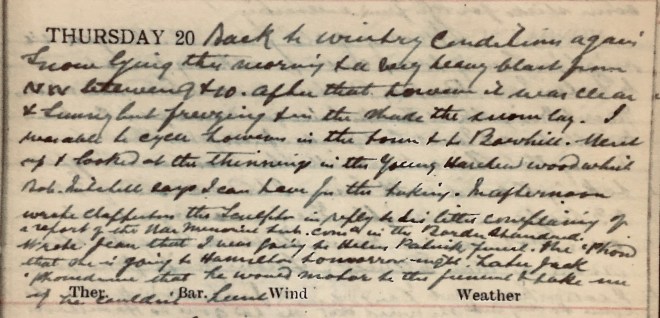 THURSDAY 20 Back to wintry conditions again
Snow lying this morning & a very heavy blast from
NW between 9 & 10. After that however it was clear
& sunny but freezing & in the shade the snow lay. I
was able to cycle however in the town & to Bowhill. Went
up & looked at the thinning in the Young Harehead wood which
Rob. Mitchell says I can have for the taking. In afternoon
wrote Clapperton the Sculptor in reply to his letter complaining of
a report of the War Memorial Sub. Com. in the Border Standard.
Wrote Jean that I was going to Helen Patrick funeral. She 'Phoned
that she is going to Hamilton tomorrow night. Later Jack
'Phoned me that he would motor to the funeral & take me
if he couldn't
Ther. Bar. Wind Weather